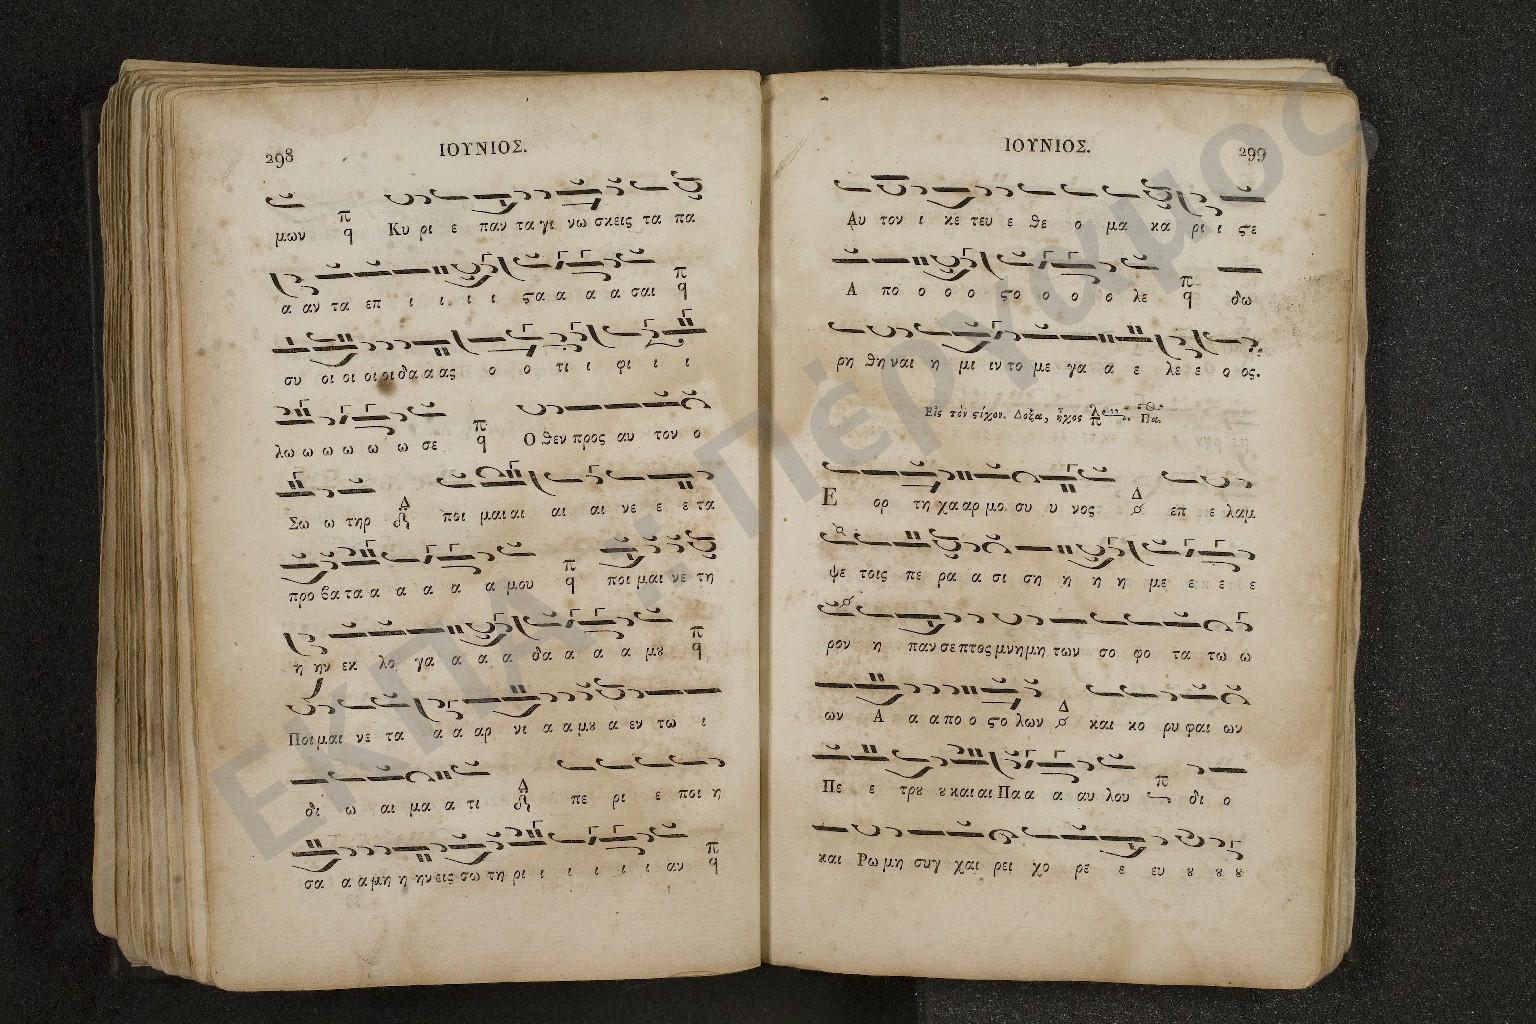 298
ΙΟΥΝΙΟΣ.
μων π q Κυ ρι ε παν τα γι νω σκεις τα πα
α αν τα επ ι ι ι ι ϛα α α α σαι π q
συ οι οι οι οι δα α ας ο ο τι ι φι ι ι
λω ω ω ω ω ω σε π q Ο θεν προς αυ τον ο
Σω ω τηρ Δ ποι μαι αι αι αι νε ε ε τα
προ βα τα α α α α α μου π q ποι μαι νε τη
η ην εκ λο γα α α α δα α α α μȣ π q
Ποι μαι νε τα α α αρ νι α α μȣ α εν τω ι
δι ω αι μα α τι Δ πε ρι ε ποι η
σα α α μη η ην εις σω τη ρι ι ι ι ι ι αν π q
ΙΟΥΝΙΟΣ.
299
Αυ τον ι κε τευ ε θε ο μα κα ρι ι ϛε
Α πο ο ο ο ϛο ο ο ο λε π q δω
ρη θη ναι η μι ιν το με γα α ε λε ε ο ος.
Εἰς τὸν ϛίχον. Δοξα, ἦχος Πα.
Ε ορ τη χα αρ μο συ υ νος Δ επ ε λαμ
ψε τοις πε ρα α σι ση η η η με ε ε ε
ρον η παν σε πτος μνη μη των σο φο τα τω ω
ων Α α α πο ο ϛο λων Δ και κο ρυ φαι ων
Πε ε τρȣ ȣ και αι Πα α α αυ λου π δι ο
και Ρω μη συγ χαι ρει χο ρε ε ευ ȣ ȣ ȣ
ΕΚΠΑ :: Πέργαμος